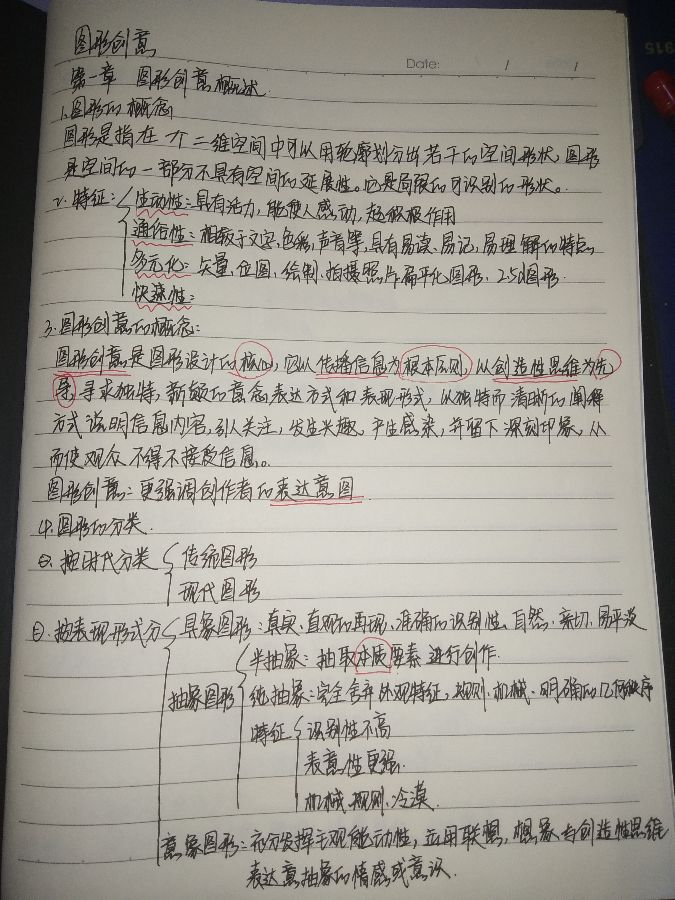 915
Date: / /
图形创意
第一章 图形创意概述
1.图形的概念
图形是指在一个二维空间中可以用轮廓划分出若干的空间形状,图形
是空间的一部分不具有空间的延展性。它是局限的可识别的形状。
2.特征: 生动性:具有活力,能使人感动,起积极作用
通俗性:相较于文字,色彩,声音等,具有易读、易记,易理解的特点
多元化:矢量,位图,绘制,拍摄照片扁平化图形,2.5d图形
快速性:
3.图形创意的概念:
图形创意是图形设计的核心,它以传播信息为根本原则,以创造性思维为先
导,寻求独特,新颖的意念表达方式和表现形式,以独特而清晰的阐释
方式说明信息内容,引人关注,发生兴趣、产生感染,并留下深刻印象,从
而使观众不得不接受信息。
图形创意:更强调创作者的表达意图
4.图形的分类
按时代分类 传统图形
现代图形
按表现形式分 具象图形:真实、直观的再现、准确的识别性、自然、亲切、易平淡
半抽象:抽取本质要素进行创作.
抽象图形 纯抽象:完全舍弃外观特征,规则、机械、明确的几何秩序
特征 识别性不高
表意性更强
机械、规则、冷漠
意象图形:充分发挥主观能动性,运用联想,想象与创造性思维
表达意抽象的情感或意识.